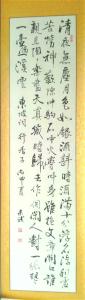 清夜無塵月色如銀酒斟時須滿十分浮名浮利虛
苦勞神歎隙中駒石中火夢中身雖抱文章開口誰
親且陶陶樂盡天真幾時歸去作個閒人對一張琴
一壺酒一溪雲 東坡詞行香子 丙申夏